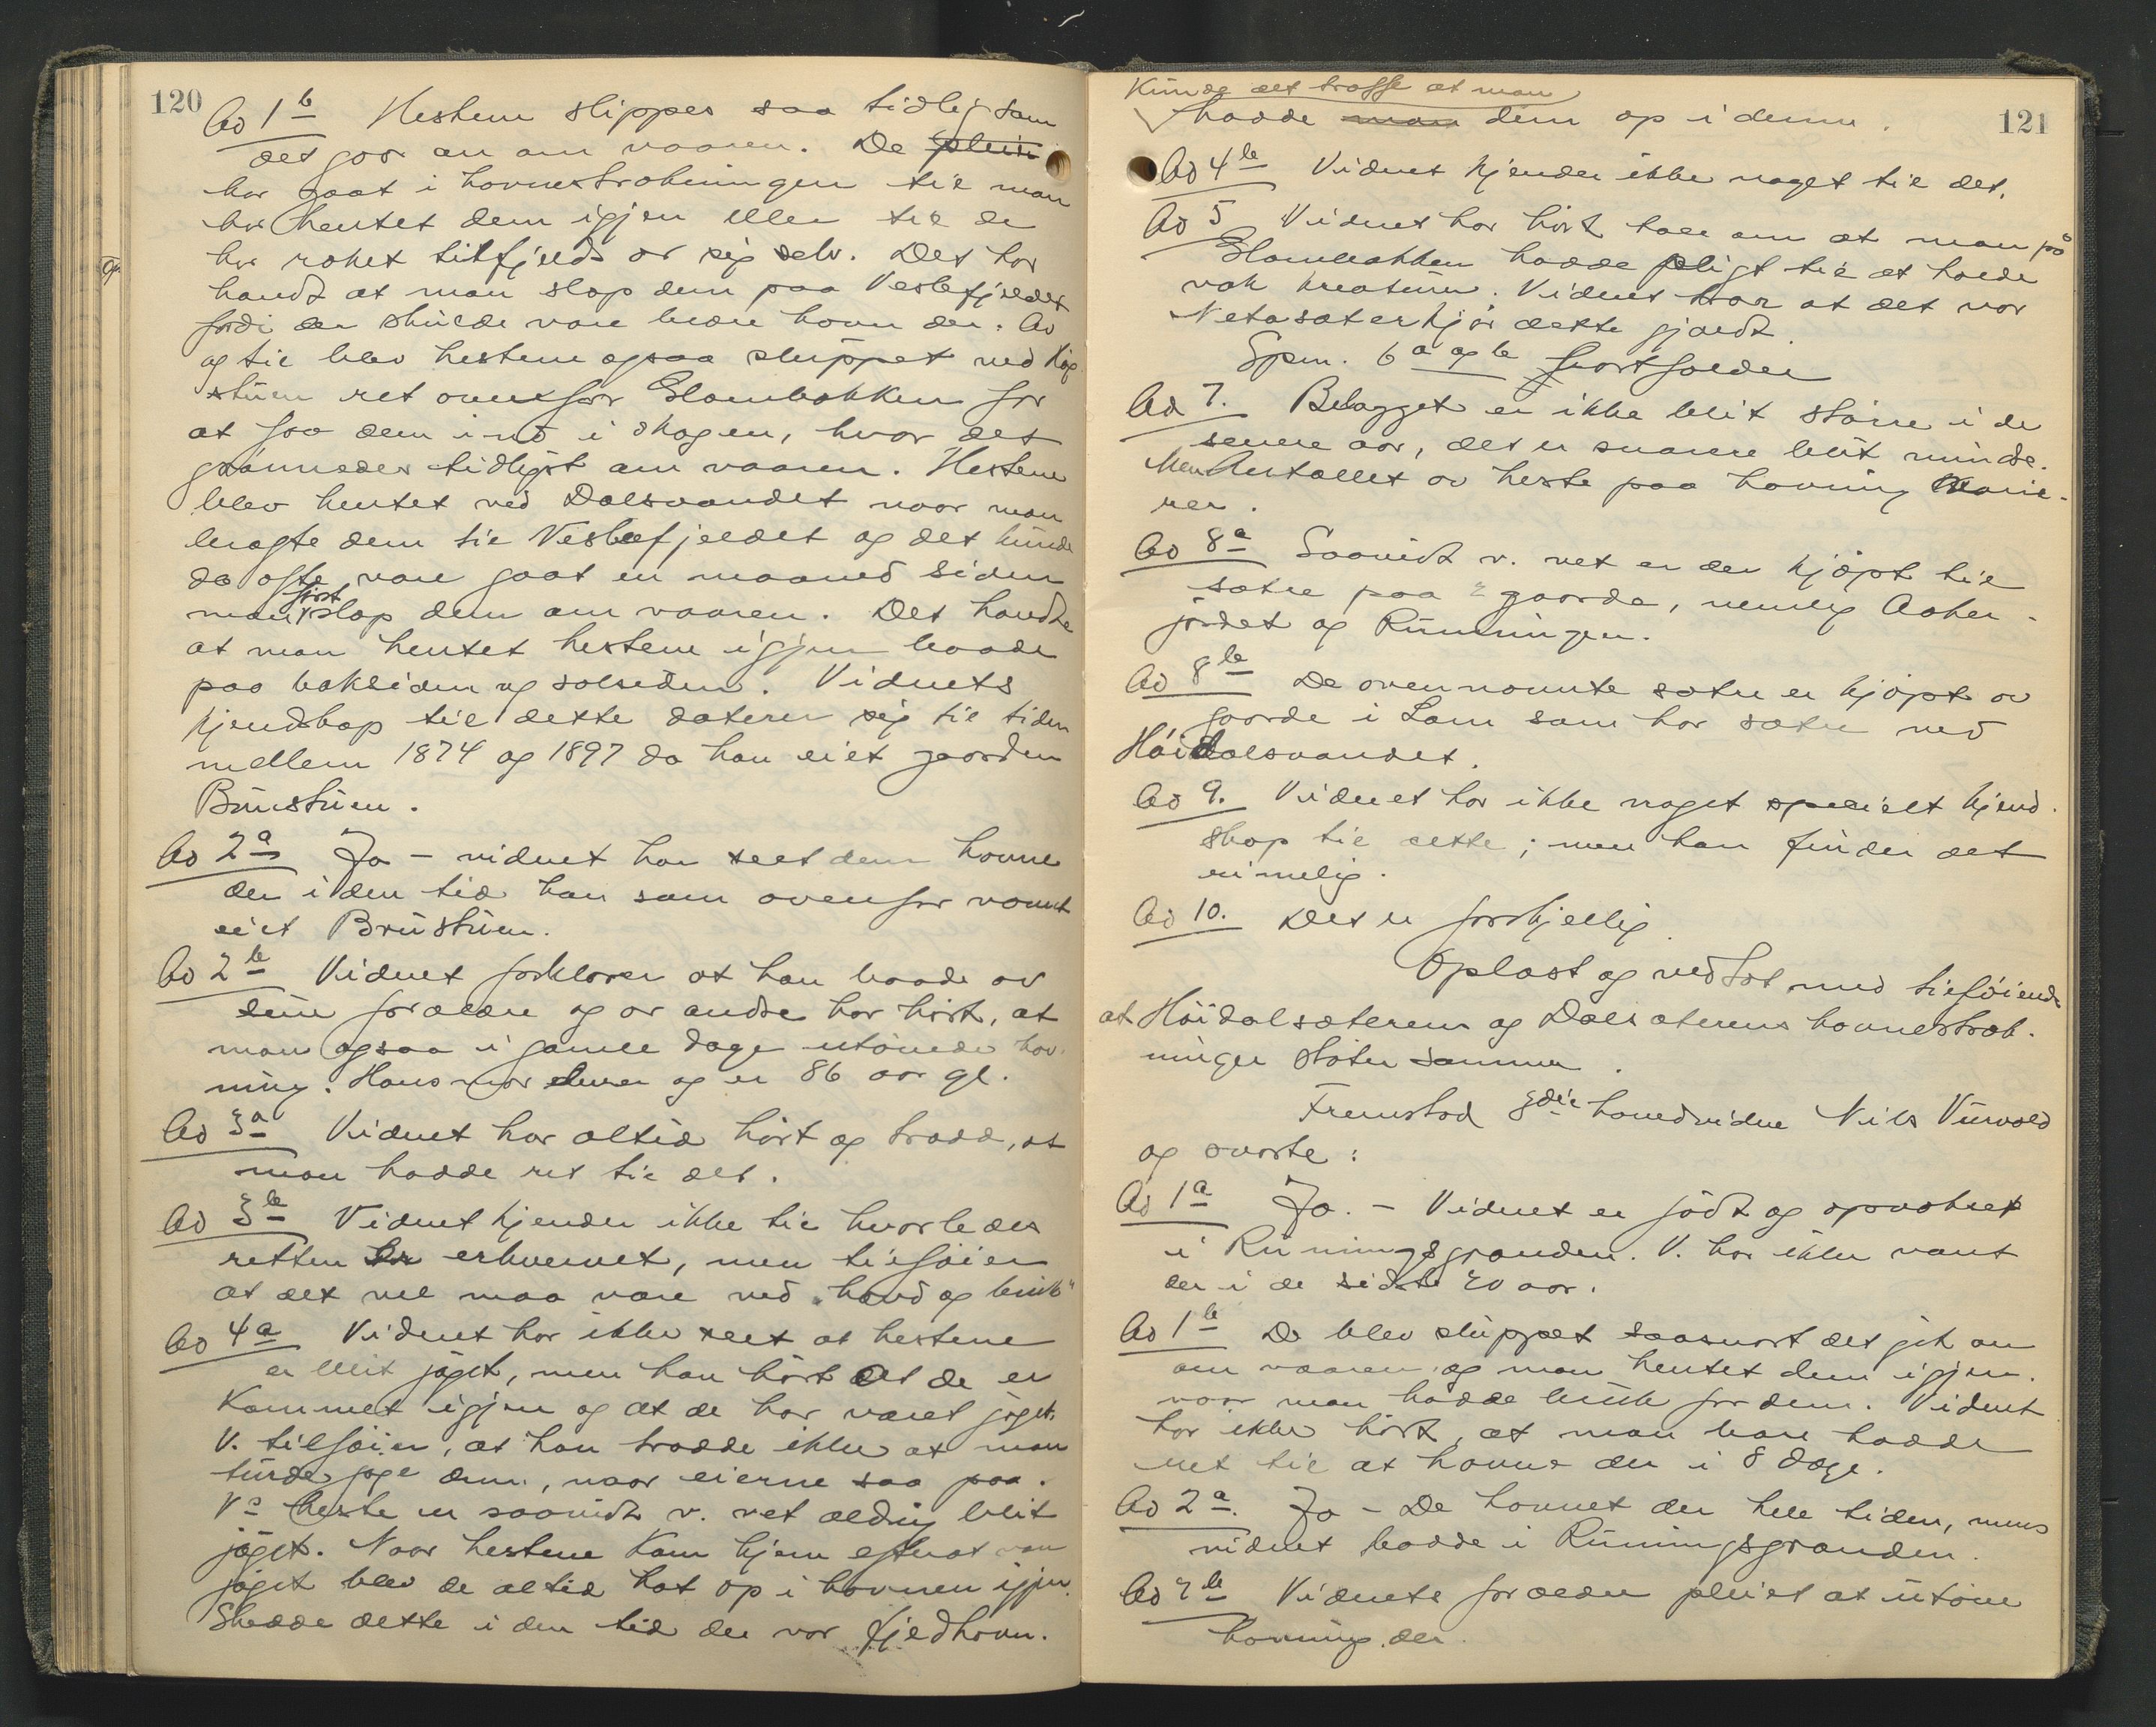 120
Ad 1b Hestene slippes saa tidlig som
det gaar an om vaaren. De pleier
har gaat i havnestrækningen til man
har hentet dem igjen eller til de
har røket tilfjelds av sig selv. Det har
hændt at man slap dem paa Veslefjeldet
fordi der skulde være bedre havn der. Av
og til blev hestene ogsaa sluppet ved Høg-
stuen ret overfor Glambakken for
at faa dem ind i skogen, hvor det
grønnedes tidligst om vaaren. Hestene
blev hentet ved Dalsvandet naar man
bragte dem til Veslefjeldet og det kunde
da ofte være gaat en maaned siden
man først slap dem om vaaren. Det hændte
at man hentet hestene igjen baade
paa baksiden og solsiden. Vidnets
kjendskap til dette daterer sig til tiden
mellem 1874 og 1897 da han eiet gaarden
Brustuen.
Ad 2a Ja – vidnet har seet dem havne
der i den tid han som ovenfor nævnt
eiet Brustuen.
Ad 2b Vidnet forklarer at han baade av
sine forældre og av andre har hørt, at
man ogsaa i gamle dage utøvede hav-
ning. Hans mor lever og er 86 aar gl.
Ad 3a Vidnet har altid hørt og trodd, at
man hadde ret til det.
Ad 3b Vidnet kjender ikke til hvorledes
retten er erhvervet, men tilføier
at det vel maa være ved "hævd og bruk"
Ad 4a Vidnet har ikke seet at hestene
er blit jaget, men han hørt at de er
kommet igjen og at de har været jaget.
V. tilføier, at han trodde ikke at man
turde jage dem, naar eierne saa paa.
Vs heste er saavidt v. vet aldrig blit
jaget. Naar hestene kom hjem efterat være
jaget blev de altid hat op i havnen igjen.
Skedde dette i den tid der var fjeldhavn.
Op.
121
kunde det træffe at man
hadde man dem op i denne.
Ad 4b Vidnet kjender ikke noget til det.
Ad 5 Vidnet har hørt tale om at man på
Glambakken hadde pligt til at holde
vak kreaturer. Vidnet tror at det var
Netosæterkjør dette gjaldt.
Spm. 6a og b bortfalder
Ad 7. Belægget er ikke blit større i de
senere aar, det er snarere blit mindre.
Men Antallet av heste paa havning varie-
rer.
Ad 8a Saavidt v. vet er der kjøpt til
sætre paa 2 gaarde, nemlig Aaker-
jordet og Runningen.
Ad 8b De ovennævnte sætre er kjøpt av
gaarde i Lom som har sætre ved
Høidalsvandet.
Ad 9. Vidnet har ikke noget specielt kjend-
skap til dette; men han finder det
rimelig.
Ad 10. Det er forskjellig.
Oplæst og vedtat med tilføiende
at Høidalsæterens og Dalsæterens havnestræk-
ninger støter sammen.
Fremstod 8de hovedvidne Nils Vürvold
og svarte:
Ad 1a Ja. – Vidnet er født og opvokset
i Runingsgranden. V. har ikke vant
der i de sidste 20 aar.
Ad 1b De blev sluppet saasnart det gik an
om vaaren og man hentet dem igjen.
naar man hadde bruk for dem. Vidnet
har ikke hørt, at man bare hadde
ret til at havne der i 8 dage.
Ad 2a. Ja – De havnet der hele tiden, mens
vidnet bodde i Runingsgranden.
Ad 2b Vidnets forældre pleiet at utøve
havning der.